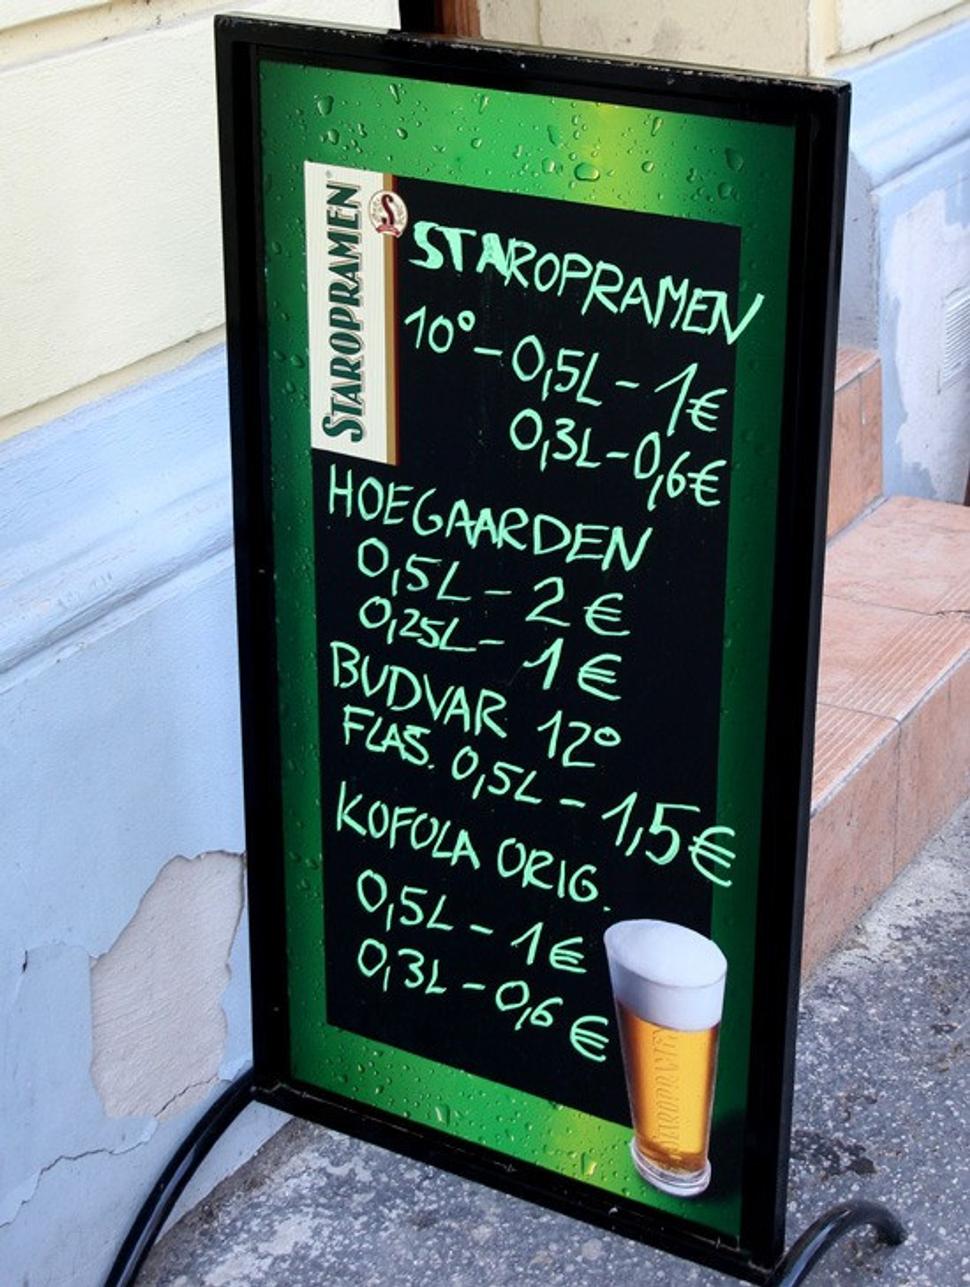 STAROPRAMEN
STAROPRAMEN
10° - 0,5L - 1€
0,3L - 0,6€
HOEGAARDEN
0,5L - 2 €
0,25L - 1 €
BUDVAR 12°
FLAŠ. 0,5L - 1,5€
KOFOLA ORIG.
0,5L - 1€
0,3L - 0,6 €
STAROPRAMEN